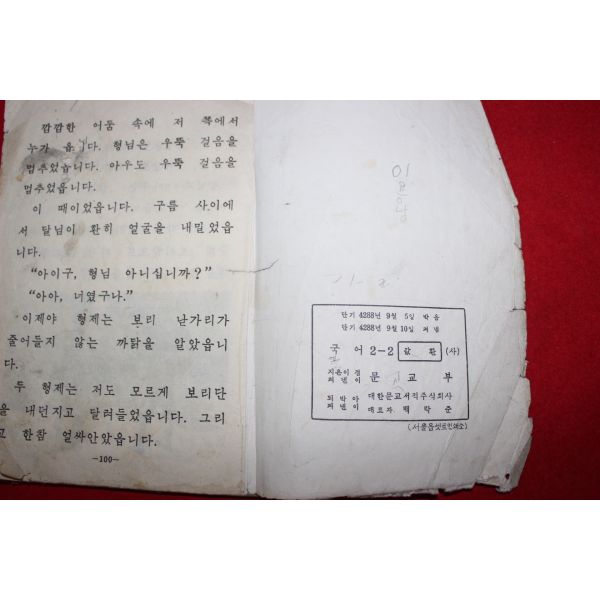 깜깜한 어둠 속에 저 쪽에서
누가 옵니다. 형님은 우뚝 걸음을
멈추었읍니다. 아우도 우뚝 걸음을
멈추었읍니다.
이 때이었읍니다. 구름 사이에
서 달님이 환히 얼굴을 내밀었읍
니다.
“아이구, 형님 아니십니까?”
“아아, 너였구나.”
이제야 형제는 보리 낟가리가
줄어들지 않는 까닭을 알았읍니
다.
두 형제는 저도 모르게 보리단
을 내던지고 달려들었읍니다. 그리
고 한참 얼싸안았읍니다.
—100—
단기 4288년 9월 5일 박음
단기 4288년 9월 10일 펴냄
국어 2-2 값 환 (사)
지은이 겸
펴낸이 문교부
되박아
펴낸이 대한문교서적주식회사
대표자 백낙준
(서울옵셋트인쇄소)